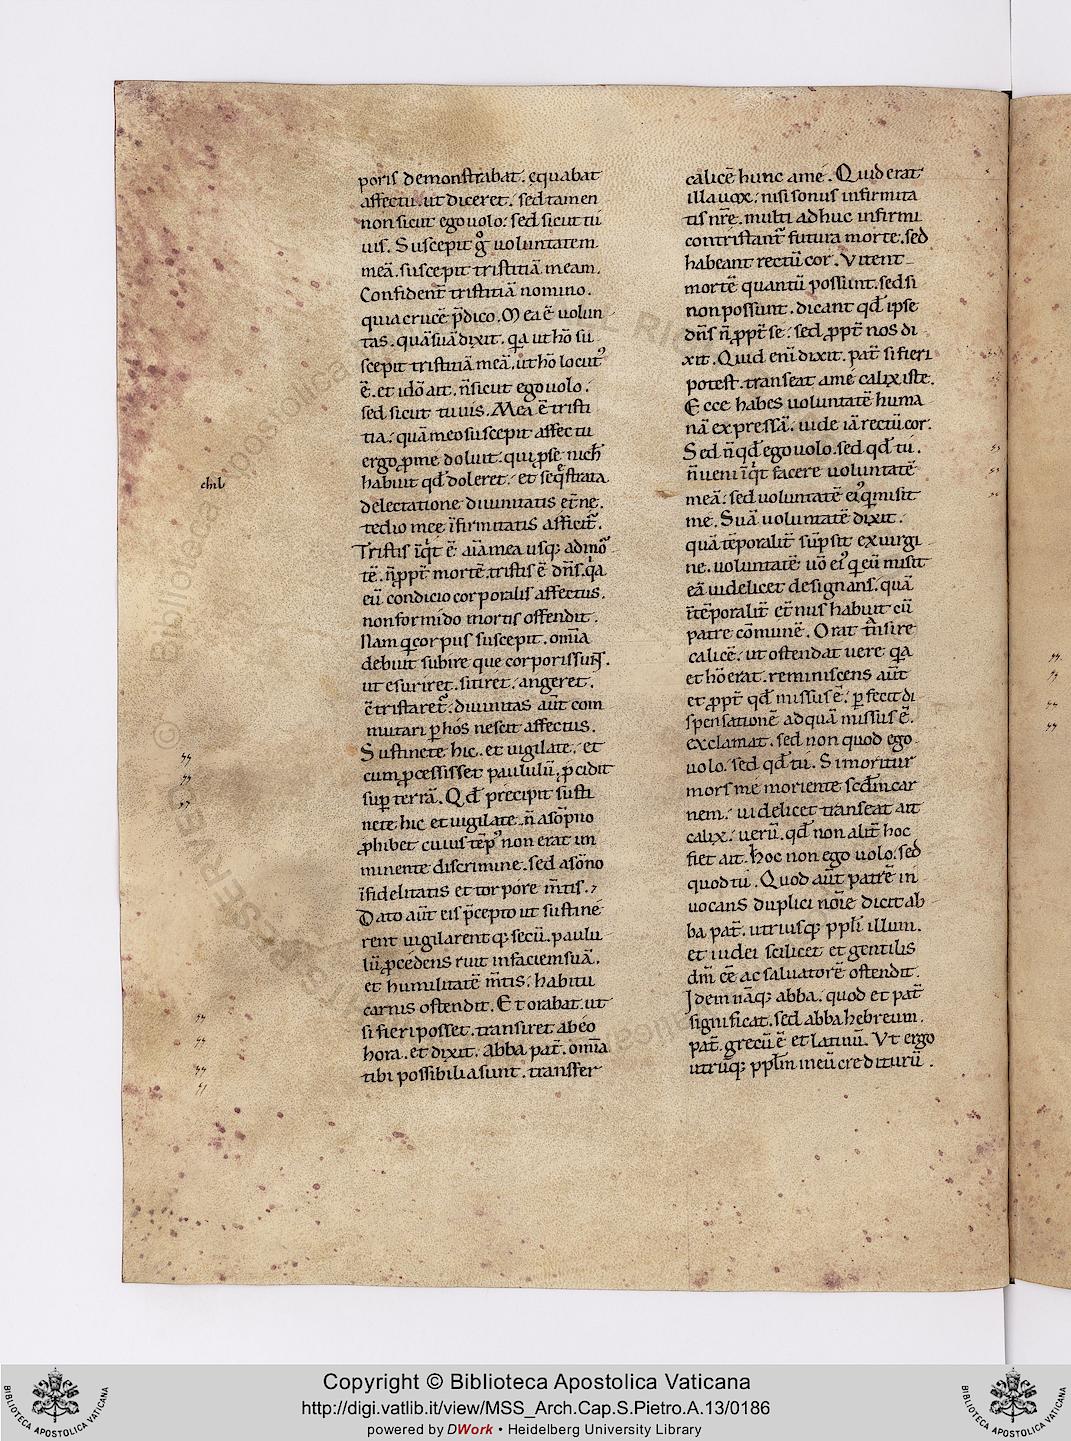 poris demonstrabat. equabat
affectu. ut diceret. sed tamen
non sicut ego uolo: sed sicut tu
uis. Suscepit gͦ uoluntatem
meā. suscepit tristitiā meam.
Confident̄ tristitiā nomino.
quia crucē p̄dico. Mea ē uolun
tas. quā suā dixit. qa ut hō su
scepit tristitiā meā. ut hō locut᾽
ē. et idō ait. n̄ sicut ego uolo.
sed sicut tu uis. Mea ē tristi
tia. quā meo suscepit affectu
ergo ꝓ me doluit. qui ꝓ se nich̄
chil
habuit qd̄ doleret. et seq̄strata
delectatione diuinitatis et̄ne.
tedio mee īfirmitatis afficit᾽.
Tristis īqt ē aīa mea usq; ad mo᾽
tē. n̄ ꝓpt̄ mortē. tristis ē dn̄s. qa
eū condicio corporalis affectus.
non formido mortis offendit.
Nam q corpus suscepit. om̄ia
debuit subire que corporis sun̄t.
ut esuriret. sitiret. angeret᾽.
cōtristaret᾽. diuinitas aut̄ com
mutari ꝑ hos nescit affectus.
Sustinete hic. et uigilate. et
cum ꝓcessisset paululū. ꝓcidit
suꝑ terrā. Qd̄ precipit susti
nete hic et uigilate. n̄ a sōpno
ꝓhibet cuius tēp᾽ non erat in
minente discrimine. sed a sōno
īfidelitatis et torpore m̄tis.
Dato aut̄ eis p̄cepto ut sustine
rent uigilarentq; secū. paulu
lū ꝓcedens ruit in faciem suā.
et humilitatē m̄tis. habitu
carnis ostendit. Et orabat. ut
si fieri posset. transiret ab eo
hora. et dixit. abba pat̄. om̄ia
tibi possibilia sunt. transfer
calicē hunc a me. Quid erat
illa uox. nisi sonus infirmita
tis nrē. multi adhuc infirmi
contristant᾽ futura morte. sed
habeant rectū cor. Vitent
mortē quantū possunt. sed si
non possunt. dicant qd̄ ipse
dn̄s n̄ ꝓpt̄ se. sed ꝓpt̄ nos di
xit. Quid eni dixit. pat̄ si fieri
potest. transeat a me calix iste.
Ecce habes uoluntatē huma
nā expressā. uide iā rectū cor.
Sed n̄ qd̄ ego uolo. sed qd̄ tu.
n̄ ueni īqt facere uoluntatē
meā. sed uoluntatē ei᾽ q misit
me. Suā uoluntatē dixit.
quā tēporalit̄ sūpsit ex uirgi
ne. uoluntatē uō ei᾽ q eū misit
eā uidelicet designans. quā
ītēporalit̄ et̄nus habuit cū
patre cōmunē. Orat trāsire
calicē. ut ostendat uere qa
et hō erat. reminiscens aut̄
et ꝓpt̄ qd̄ missus ē. ꝑfecit di
spensationē ad quā missus ē.
exclamat. sed non quod ego
uolo. sed qd̄ tu. Si moritur
mors me moriente scdm̄ car
nem. uidelicet transeat ait
calix. uerū. qd̄ non alit̄ hoc
fiet ait. Hoc non ego uolo. sed
quod tu. Quod aut̄ patrē in
uocans duplici nōīe dicit ab
ba pat̄. utriusq; ppl̄i illum.
et iudei scilicet et gentilis
dm̄ eē ac saluatorē ostendit.
Idem nāq; abba. quod et pat̄
significat. sed abba hebreum.
pat̄. grecū ē et latinū. Vt ergo
utrūq; ppl̄m in eū crediturū.
Copyright © Biblioteca Apostolica Vaticana
http://digi.vatlib.it/view/MSS_Arch.Cap.S.Pietro.A.13/0186
powered by DWork • Heidelberg University Library
BIBLIOTECA APOSTOLICA VATICANA
BIBLIOTECA APOSTOLICA VATICANA